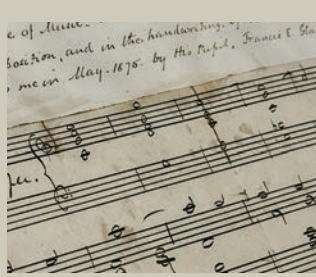 e of Music.
position, and in the handwriting, of
me in May. 1875. by His Pupil, Francis E. Gla